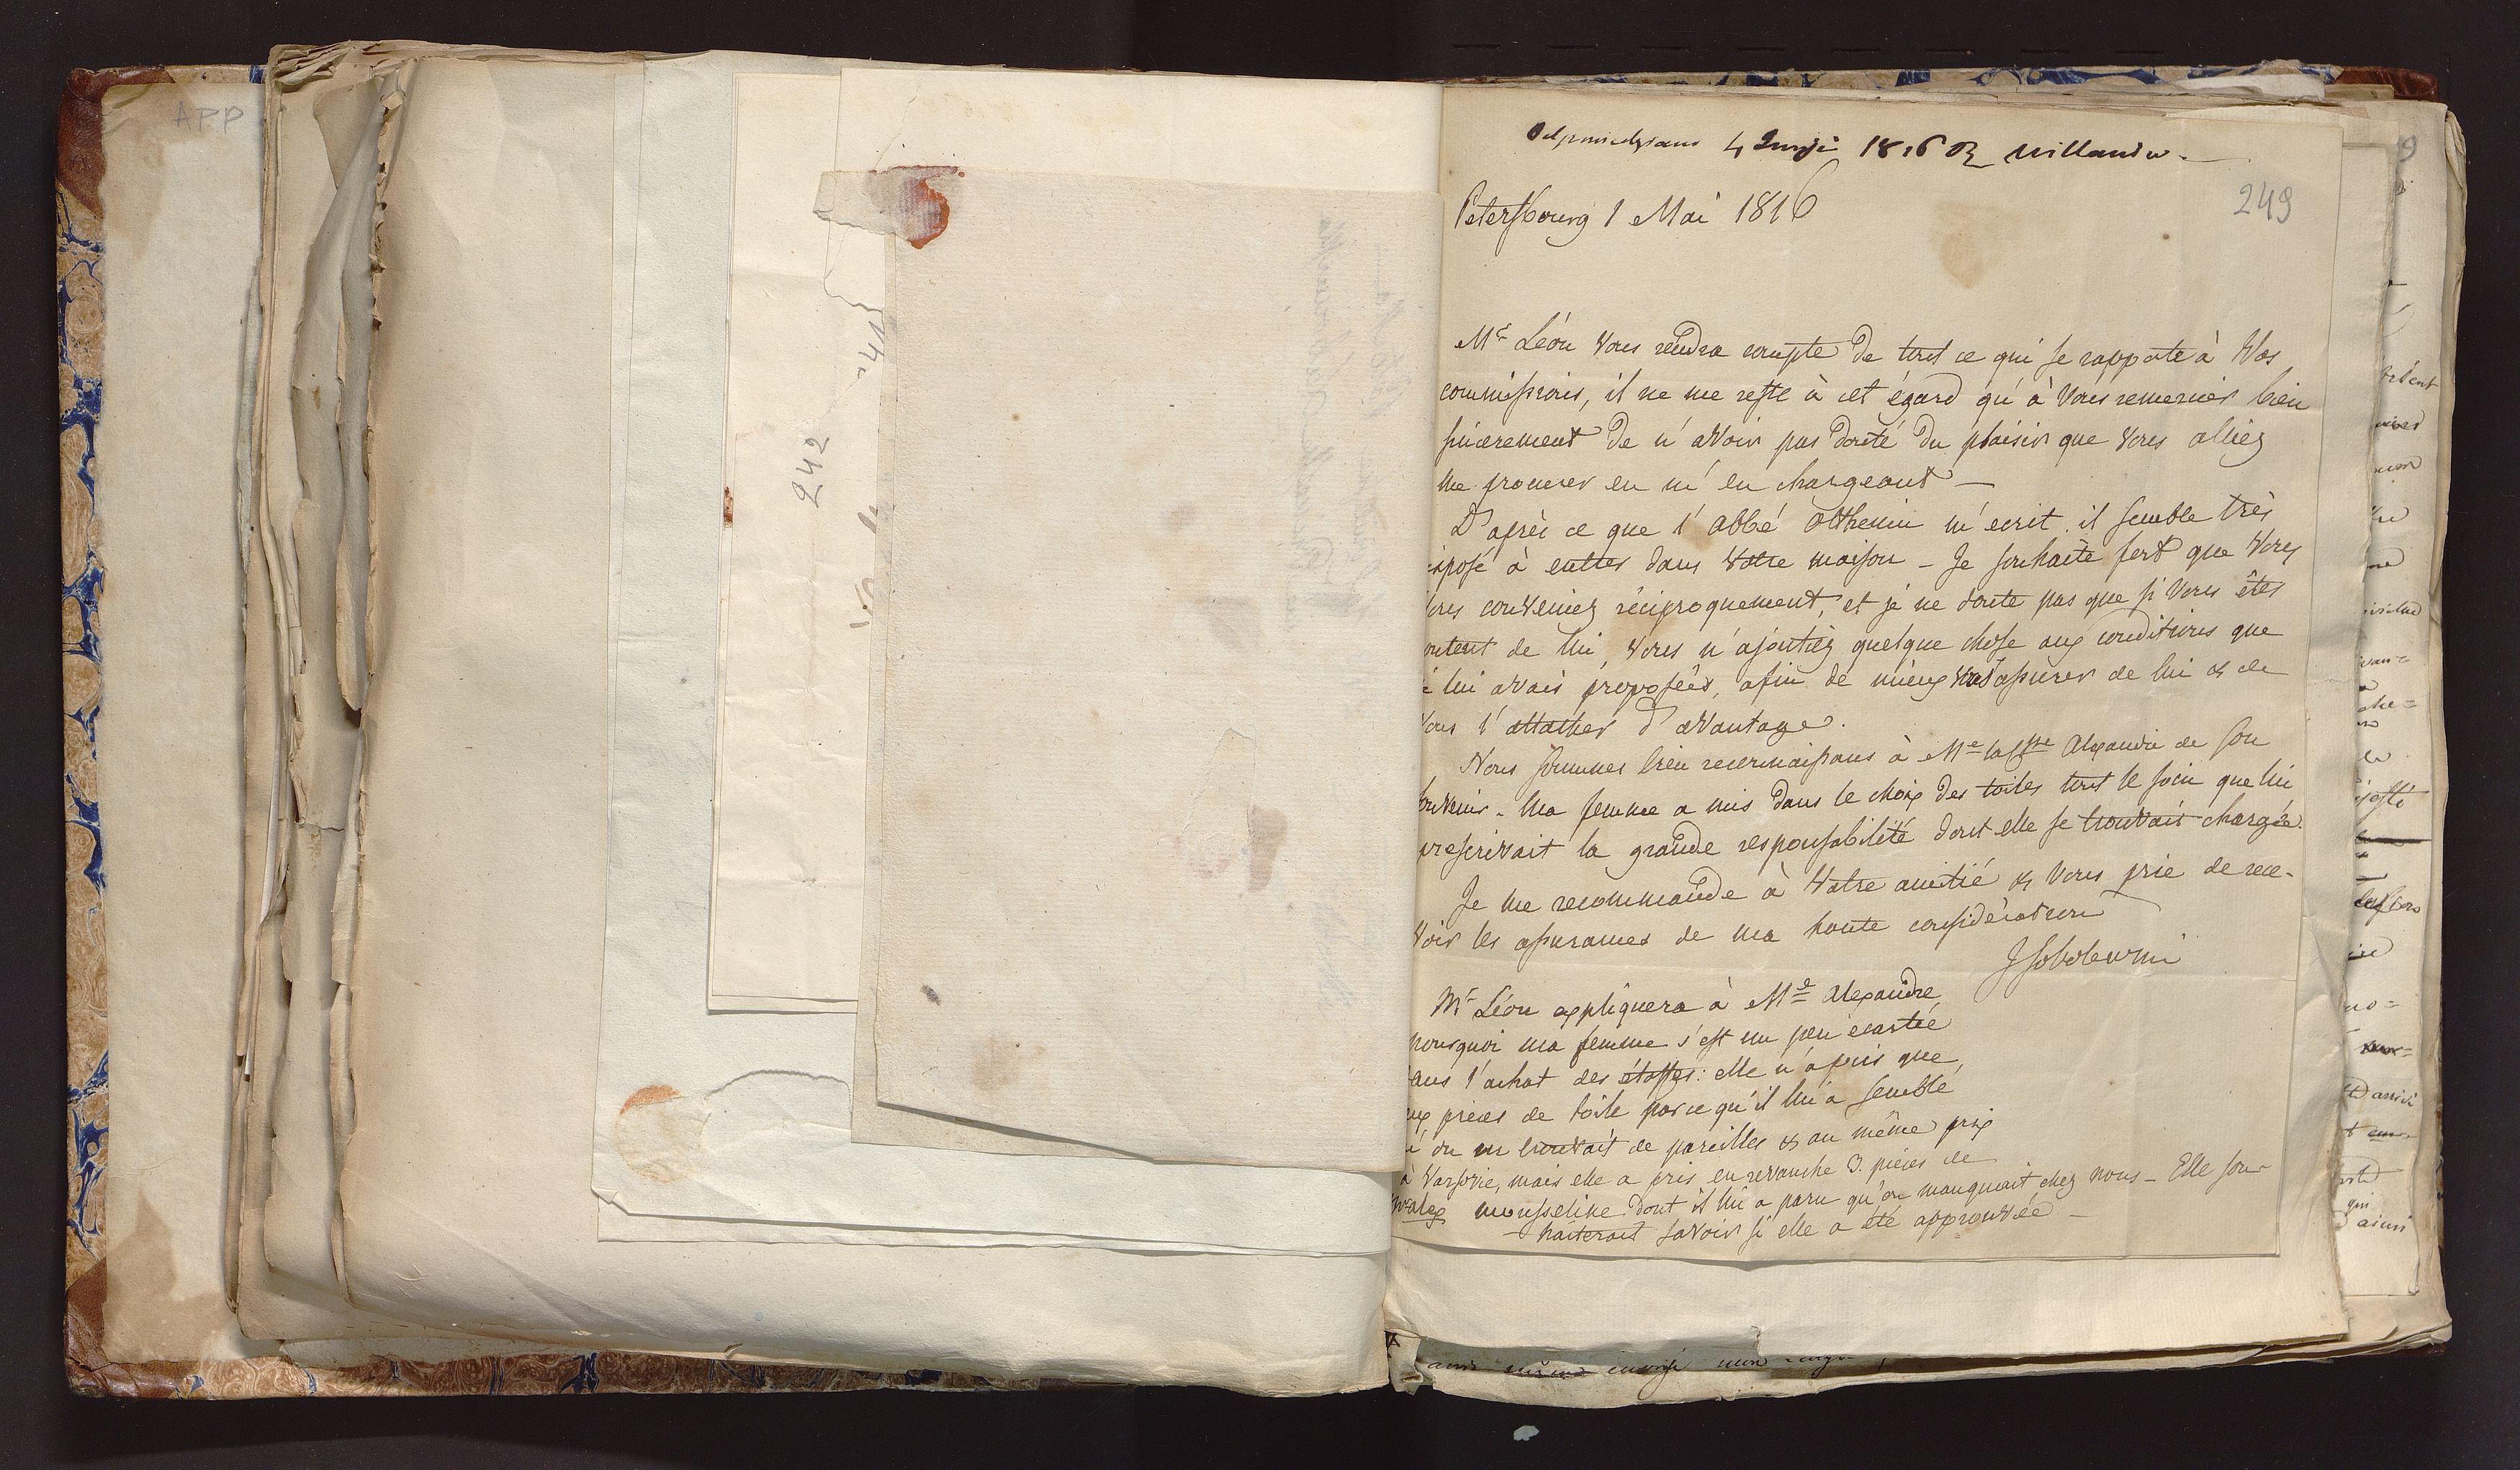 APP
242
Odpowiedziano 4 Junji 1816 Z Willanowa.
249
Petersbourg 1 Mai 1816
Mr Léon Vous rendra compte de tout ce qui se rapporte à Vos
commissions, il ne me reste à cet égard qu'à Vous remercier bien
sincerement de n'avoir pas douté du plaisir que Vous alliez
me procurer en m'en chargeant —
D'après ce que l'Abbé m'ecrit, il semble très
isposé à entrer dans Votre maison — Je souhaite fort que Vous
ous conveniez réciproquement, et je ne doute pas que si Vous êtes
ontent de lui, Vous n'ajoutiez quelque chose aux conditions que
e lui avais proposées, afin de mieux Vous assurer de lui & de
Vous l'attacher d'avantage.
Nous sommes bien reconnaissans à Me la Csse Alexandre de son
souvenir. Ma femme a mis dans le choix des toiles tout le soin que lui
prescrivait la grande responsabilité dont elle se trouvait chargée.
Je me recommande à Votre amitié & Vous prie de rece-
voir les assurances de ma haute considération
J Sobolewski
Mr Léon expliquera à Me Alexandre
pourquoi ma femme s'est un peu ecartée
dans l'achat des étoffes: elle n'a pris que
ux pieces de toile parce qu'il lui a semblé
u'on en trouvait de pareilles & au même prix
à Varsovie, mais elle a pris en revanche 3. pièces de
mousseline dont il lui a paru qu'on manquait chez nous — Elle sou-
haiterait savoir si elle a été approuvée —